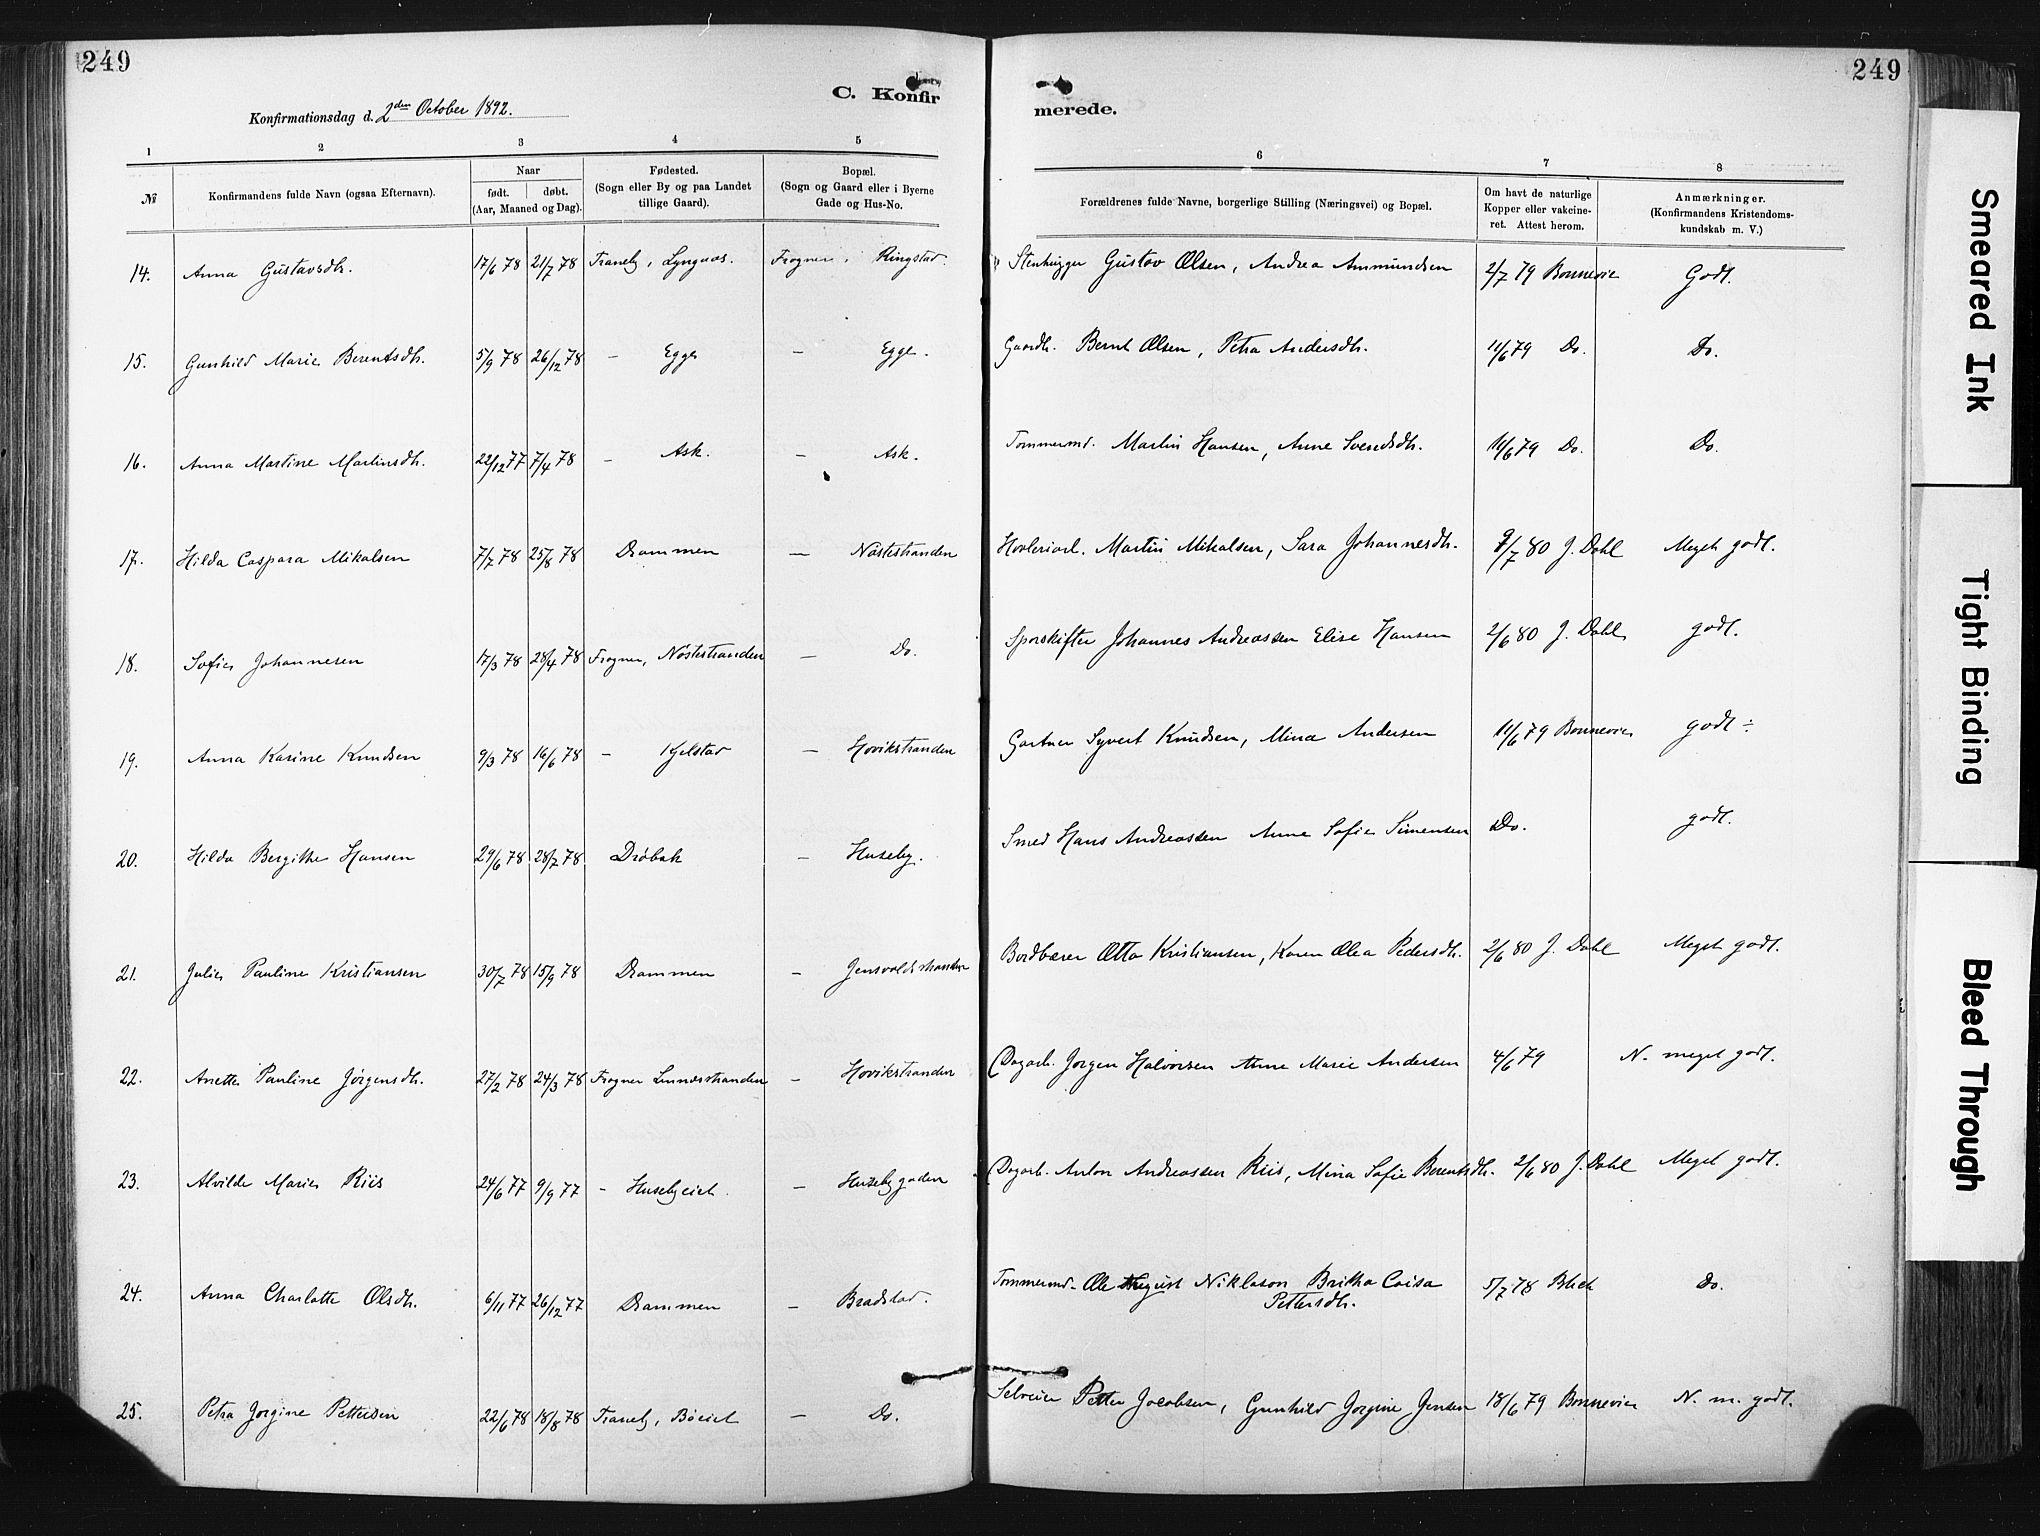 249
249
C. Konfir
merede.
Konfirmationsdag d. 2den October 1892.
1 2 3 4 5 6 7 8
№ Konfirmandens fulde Navn (ogsaa Efternavn). Naar født. døbt. (Aar, Maaned og Dag). Fødested. (Sogn eller By og paa Landet tillige Gaard). Bopæl. (Sogn og Gaard eller i Byerne Gade og Hus-No. Forældrenes fulde Navne, borgerlige Stilling (Næringsvei) og Bopæl. Om havt de naturlige Kopper eller vakcineret. Attest herom. Anmærkninger. (Konfirmandens Kristendomskundskab m. V.)
14. Anna Gustavsdtr. 17/6 78 21/7 78 Tranby, Lyngaas. Frogner, Ringstad. Stenhugger Gustav Olsen, Andrea Ammundsen 2/7 79 Bonnevie Godt.
15. Gunhild Marie Berentsdtr. 5/9 78 26/12 78 – Egge – Egge. Gaardb. Bernt Olsen, Petra Andersdtr. 11/6 79 Do. Do.
16. Anna Martine Martinsdtr. 22/12 77 7/4 78 – Ask. – Ask. Tømmermd. Martin Hansen, Anne Svendsdtr. 11/6 79 Do. Do.
17. Hilda Caspara Mikalsen 7/7 78 25/8 78 Drammen – Nøstestranden Høvleriarb. Martin Mikalsen, Sara Johannesdtr. 9/7 80 J. Dahl Meget godt.
18. Sofie Johannesen 17/3 78 28/4 78 Frogner, Nøstestranden – Do. Sporskifter Johannes Andreassen Elise Hansen 2/6 80 J. Dahl godt.
19. Anna Karine Knudsen 9/3 78 16/6 78 – Kjelstad – Hovikstranden Gartner Syvert Knudsen, Mina Andersen 11/6 79 Bonnevie godt ÷
20. Hilda Bergithe Hansen 29/6 78 28/7 78 Drøbak – Huseby. Smed Hans Andreassen Anne Sofie Simensen Do. godt.
21. Julie Pauline Kristiansen 30/7 78 15/9 78 Drammen – Jensvoldstranden Bordbærer Otto Kristiansen, Karen Olea Pedersdtr. 2/6 80 J. Dahl Meget godt.
22. Anette Pauline Jörgensdtr. 27/2 78 24/3 78 Frogner Linnesstranden – Hovikstranden Dagarb. Jørgen Halvorsen Anne Marie Andersen 4/6 79 N. meget godt.
23. Alvilde Marie Riis 24/6 77 9/9 77 – Husebyeiet. – Husebygaden Dagarb. Anton Andreassen Riis, Mina Sofie Berentsdtr. 2/6 80 J. Dahl Meget godt.
24. Anna Charlotte Olsdtr. 6/11 77 26/12 77 Drammen – Bradstad. Tømmermd. Ole August Niklason Britha Caisa Pettersdtr. 5/7 78 Do.
25. Petra Jorgine Pettersen 22/6 78 18/8 78 Tranby, Böeiet – Do. Selveier Petter Jacobsen, Gunhild Jorgine Jensen 18/6 79 Bonnevie N. m. godt.
Smeared Ink
Tight Binding
Bleed Through